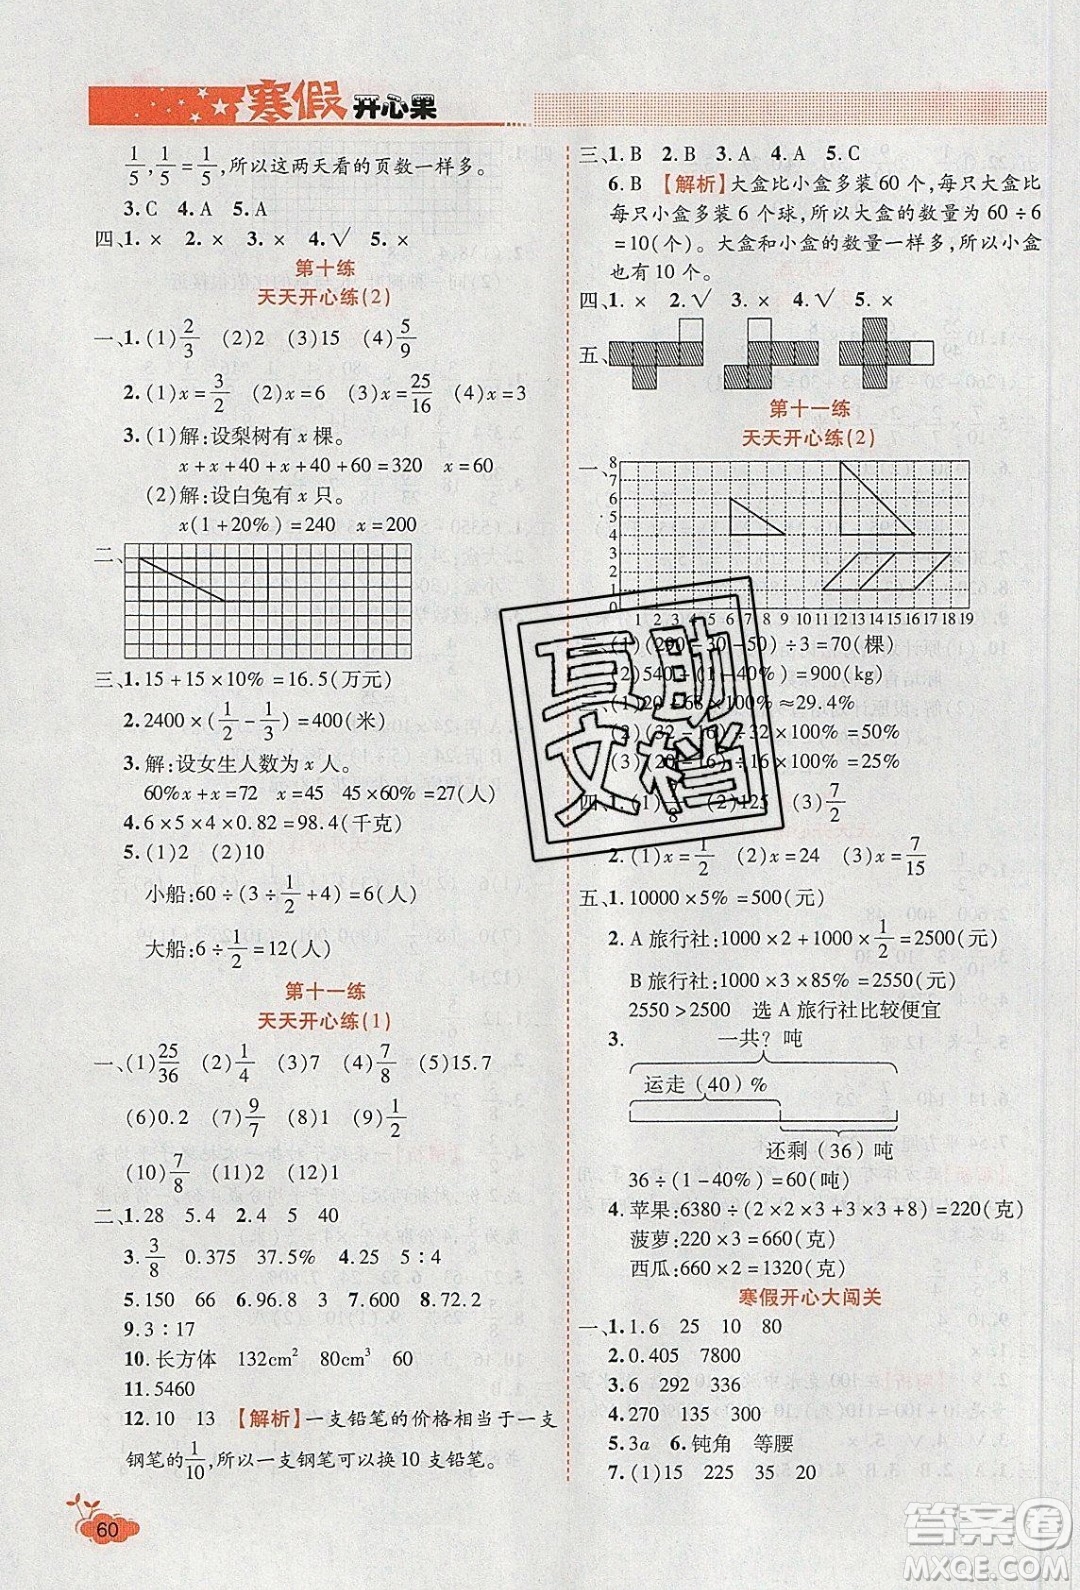 寒假开心果
1/5,1/5=1/5,所以这两天看的页数一样多。
3.C 4.A 5.A
四、1.× 2.× 3.× 4.√ 5.×
第十练
天天开心练(2)
一、1.(1)2/3 (2)2 (3)15 (4)5/9
2.(1)x=3/2 (2)x=6 (3)x=25/16 (4)x=3
3.(1)解:设梨树有x棵。
x+x+x/2+x/2×40=320 x=60
(2)解:设白兔有x只。
x(1+20%)=240 x=200
二、
三、1.15+15×10%=16.5(万元)
2.2400×(1/2-1/3)=400(米)
3.解:设女生人数为x人。
60%x+x=72 x=45 45×60%=27(人)
4.6×5×4×0.82=98.4(千克)
5.(1)2 (2)10
小船:60÷(3÷1/2+4)=6(人)
大船:6÷1/2=12(人)
第十一练
天天开心练(1)
一、(1)25/36 (2)1/4 (3)7 (4)7/8 (5)15.7
(6)2 (7)9/7 (8)1 (9)1/2
(10)7/8 (11)2 (12)1
二、1.28 5.4 2.4 5 40
3.3/8 0.375 37.5% 4.25 5:4
5.150 66 6.96.8 3 7.20 8.12
9.3:17
10.长方体 132cm² 80cm³ 60
11.5460
12.10 13 【解析】一支铅笔的价格相当于一支
钢笔的1/10,所以一支钢笔可以换10支铅笔。
60
三、1.B 2.B 3.A 4.A 5.C
6.B 【解析】大盒比小盒多装60个,每只大盒比
每只小盒多装6个球,所以大盒的数量为60÷6
=10(个)。大盒和小盒的数量一样多,所以小盒
也有10个。
四、1.× 2.√ 3.× 4.√ 5.×
五、
第十一练
天天开心练(2)
一、
8
7
6
5
4
3
2
1
0
1 2 3 4 5 6 7 8 9 10 11 12 13 14 15 16 17 18 19
二、(1)(290-30-50)÷3=70(棵)
(2)540÷(1-40%)=900(kg)
三、(1)20÷68×100%≈29.4%
(2)(32-16)÷32×100%=50%
(3)(20-16)÷16×100%=25%
四、1.(1)7/8 (2)125 (3)7/2
2.(1)x=1/2 (2)x=24 (3)x=7/15
五、1.10000×5%=500(元)
2.A旅行社:1000×2+1000×1/2=2500(元)
B旅行社:1000×3×85%=2550(元)
2550>2500 选A旅行社比较便宜
3. 一共?吨
运走(40)%
还剩(36)吨
36÷(1-40%)=60(吨)
4.苹果:6380÷(2×2×3×3+8)=220(克)
菠萝:220×3=660(克)
西瓜:660×2=1320(克)
寒假开心大闯关
一、1.1.6 25 10 80
2.0.405 7800
3.6 292 336
4.270 90 1350
5.3a 6.钝角 等腰
7.(1)15 225 35 20
互助
文档
答案圈
MXQE.COM